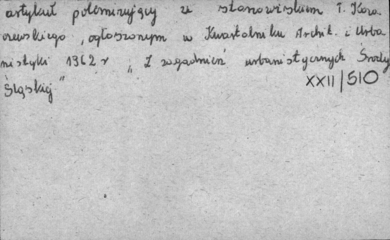 artykuł polemizujący ze stanowiskiem T. Koza
czewskiego, ogłoszonym w Kwartalniku Archit. i Urba
nistyki 1962 r „Z zagadnień urbanistycznych Środy
Śląskiej”
XXII/510